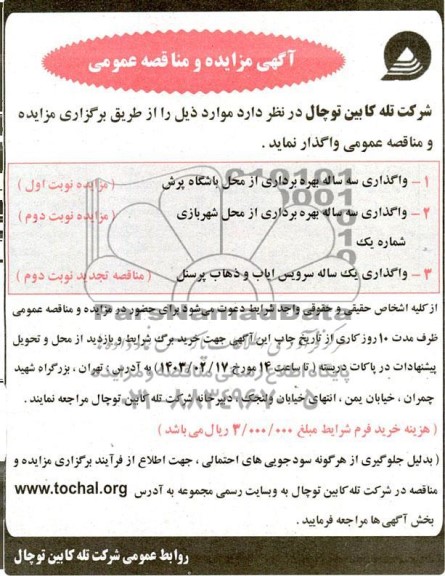 آگهی مزایده و مناقصه عمومی
شرکت تله کابین توچال در نظر دارد موارد ذیل را از طریق برگزاری مزایده
و مناقصه عمومی واگذار نماید .
۱ – واگذاری سه ساله بهره برداری از محل باشگاه پرش ( مزایده نوبت اول )
۲ – واگذاری سه ساله بهره برداری از محل شهربازی ( مزایده نوبت دوم )
شماره یک
۳ – واگذاری یک ساله سرویس ایاب و ذهاب پرسنل ( مناقصه تجدید نوبت دوم )
از کلیه اشخاص حقیقی و حقوقی واجد شرایط دعوت می‌شود برای حضور در مزایده و مناقصه عمومی
ظرف مدت ۱۰ روز کاری از تاریخ چاپ این آگهی جهت خرید برگ شرایط و بازدید از محل و تحویل
پیشنهادات در پاکات دربسته ( تا ساعت ۱۴ مورخ ۱۴۰۳/۰۲/۱۷) به آدرس : تهران ، بزرگراه شهید
چمران ، خیابان یمن ، انتهای خیابان ولنجک ، دبیرخانه شرکت تله کابین توچال مراجعه نمایند .
( هزینه خرید فرم شرایط مبلغ ۳/۰۰۰/۰۰۰ ریال می باشد )
( بدلیل جلوگیری از هرگونه سودجویی های احتمالی ، جهت اطلاع از فرآیند برگزاری مزایده و
مناقصه در شرکت تله کابین توچال به وبسایت رسمی مجموعه به آدرس www.tochal.org
بخش آگهی ها مراجعه فرمایید .
روابط عمومی شرکت تله کابین توچال
ParsNamadData
۰۲۱-۸۸۳۴۹۶۷۰-۵